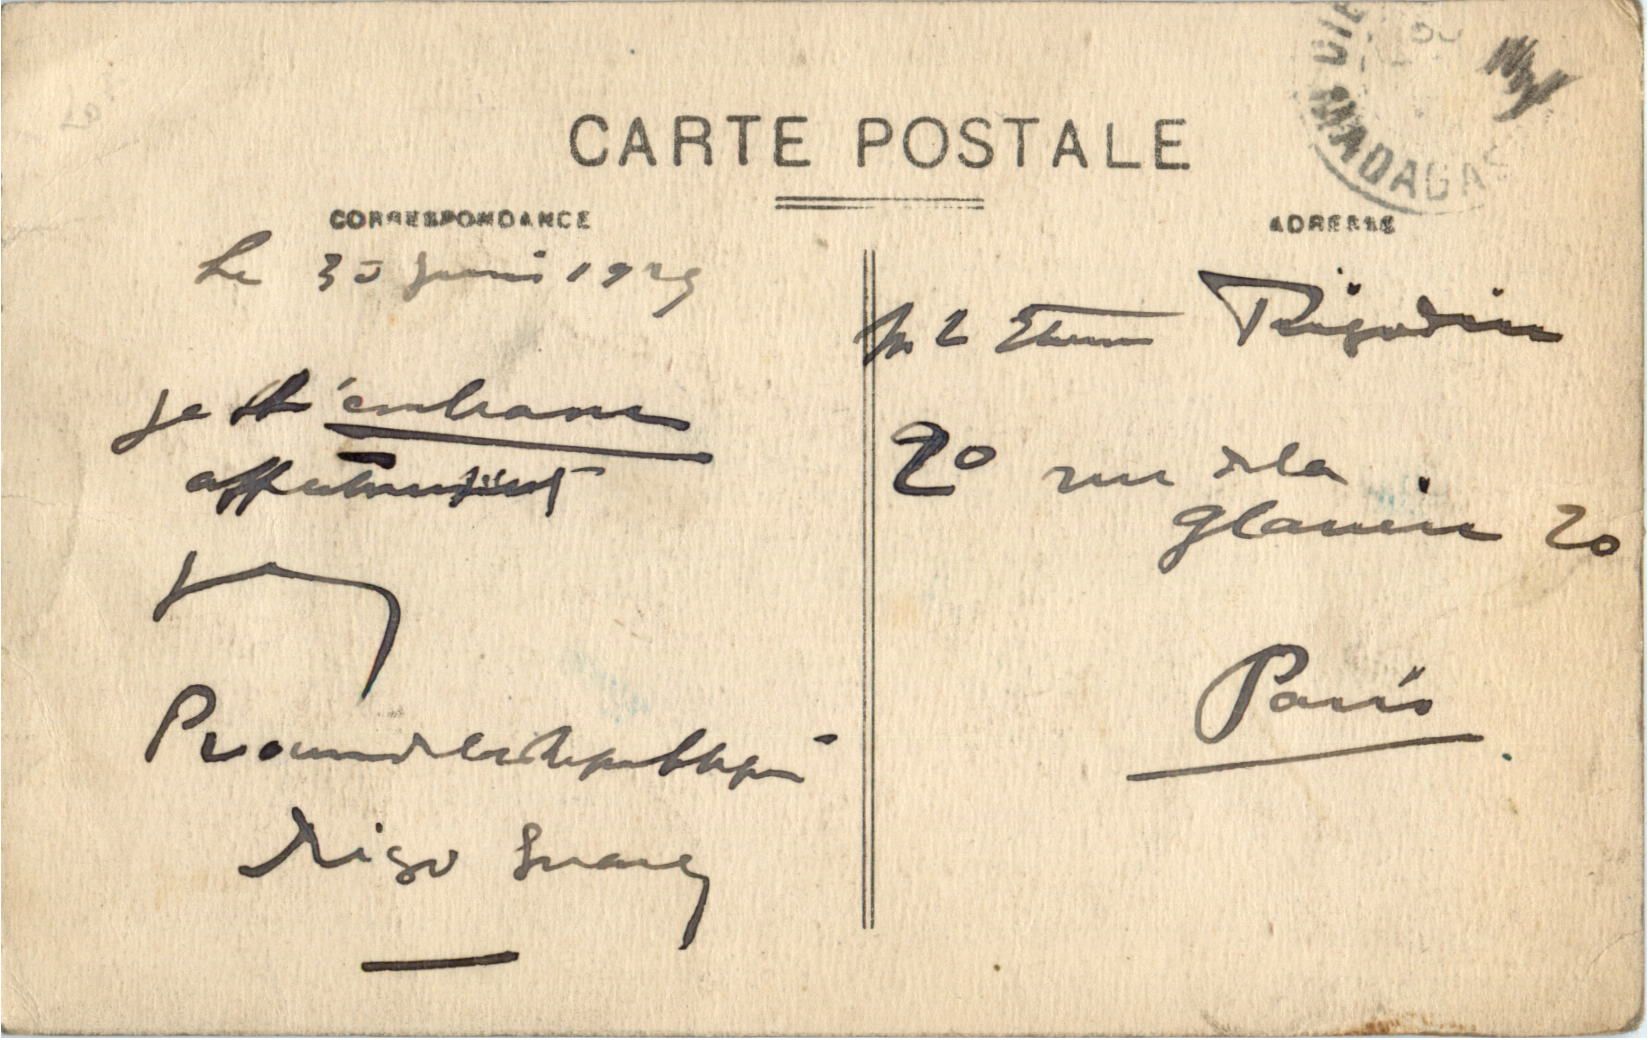 CARTE POSTALE
CORRESPONDANCE
Le 30 Juin 1929
Je t'embrasse
affectueusement
Diego Suarez
ADRESSE
Etienne Rigodin
20 rue de la
Glacière 20
Paris
MADAGAS